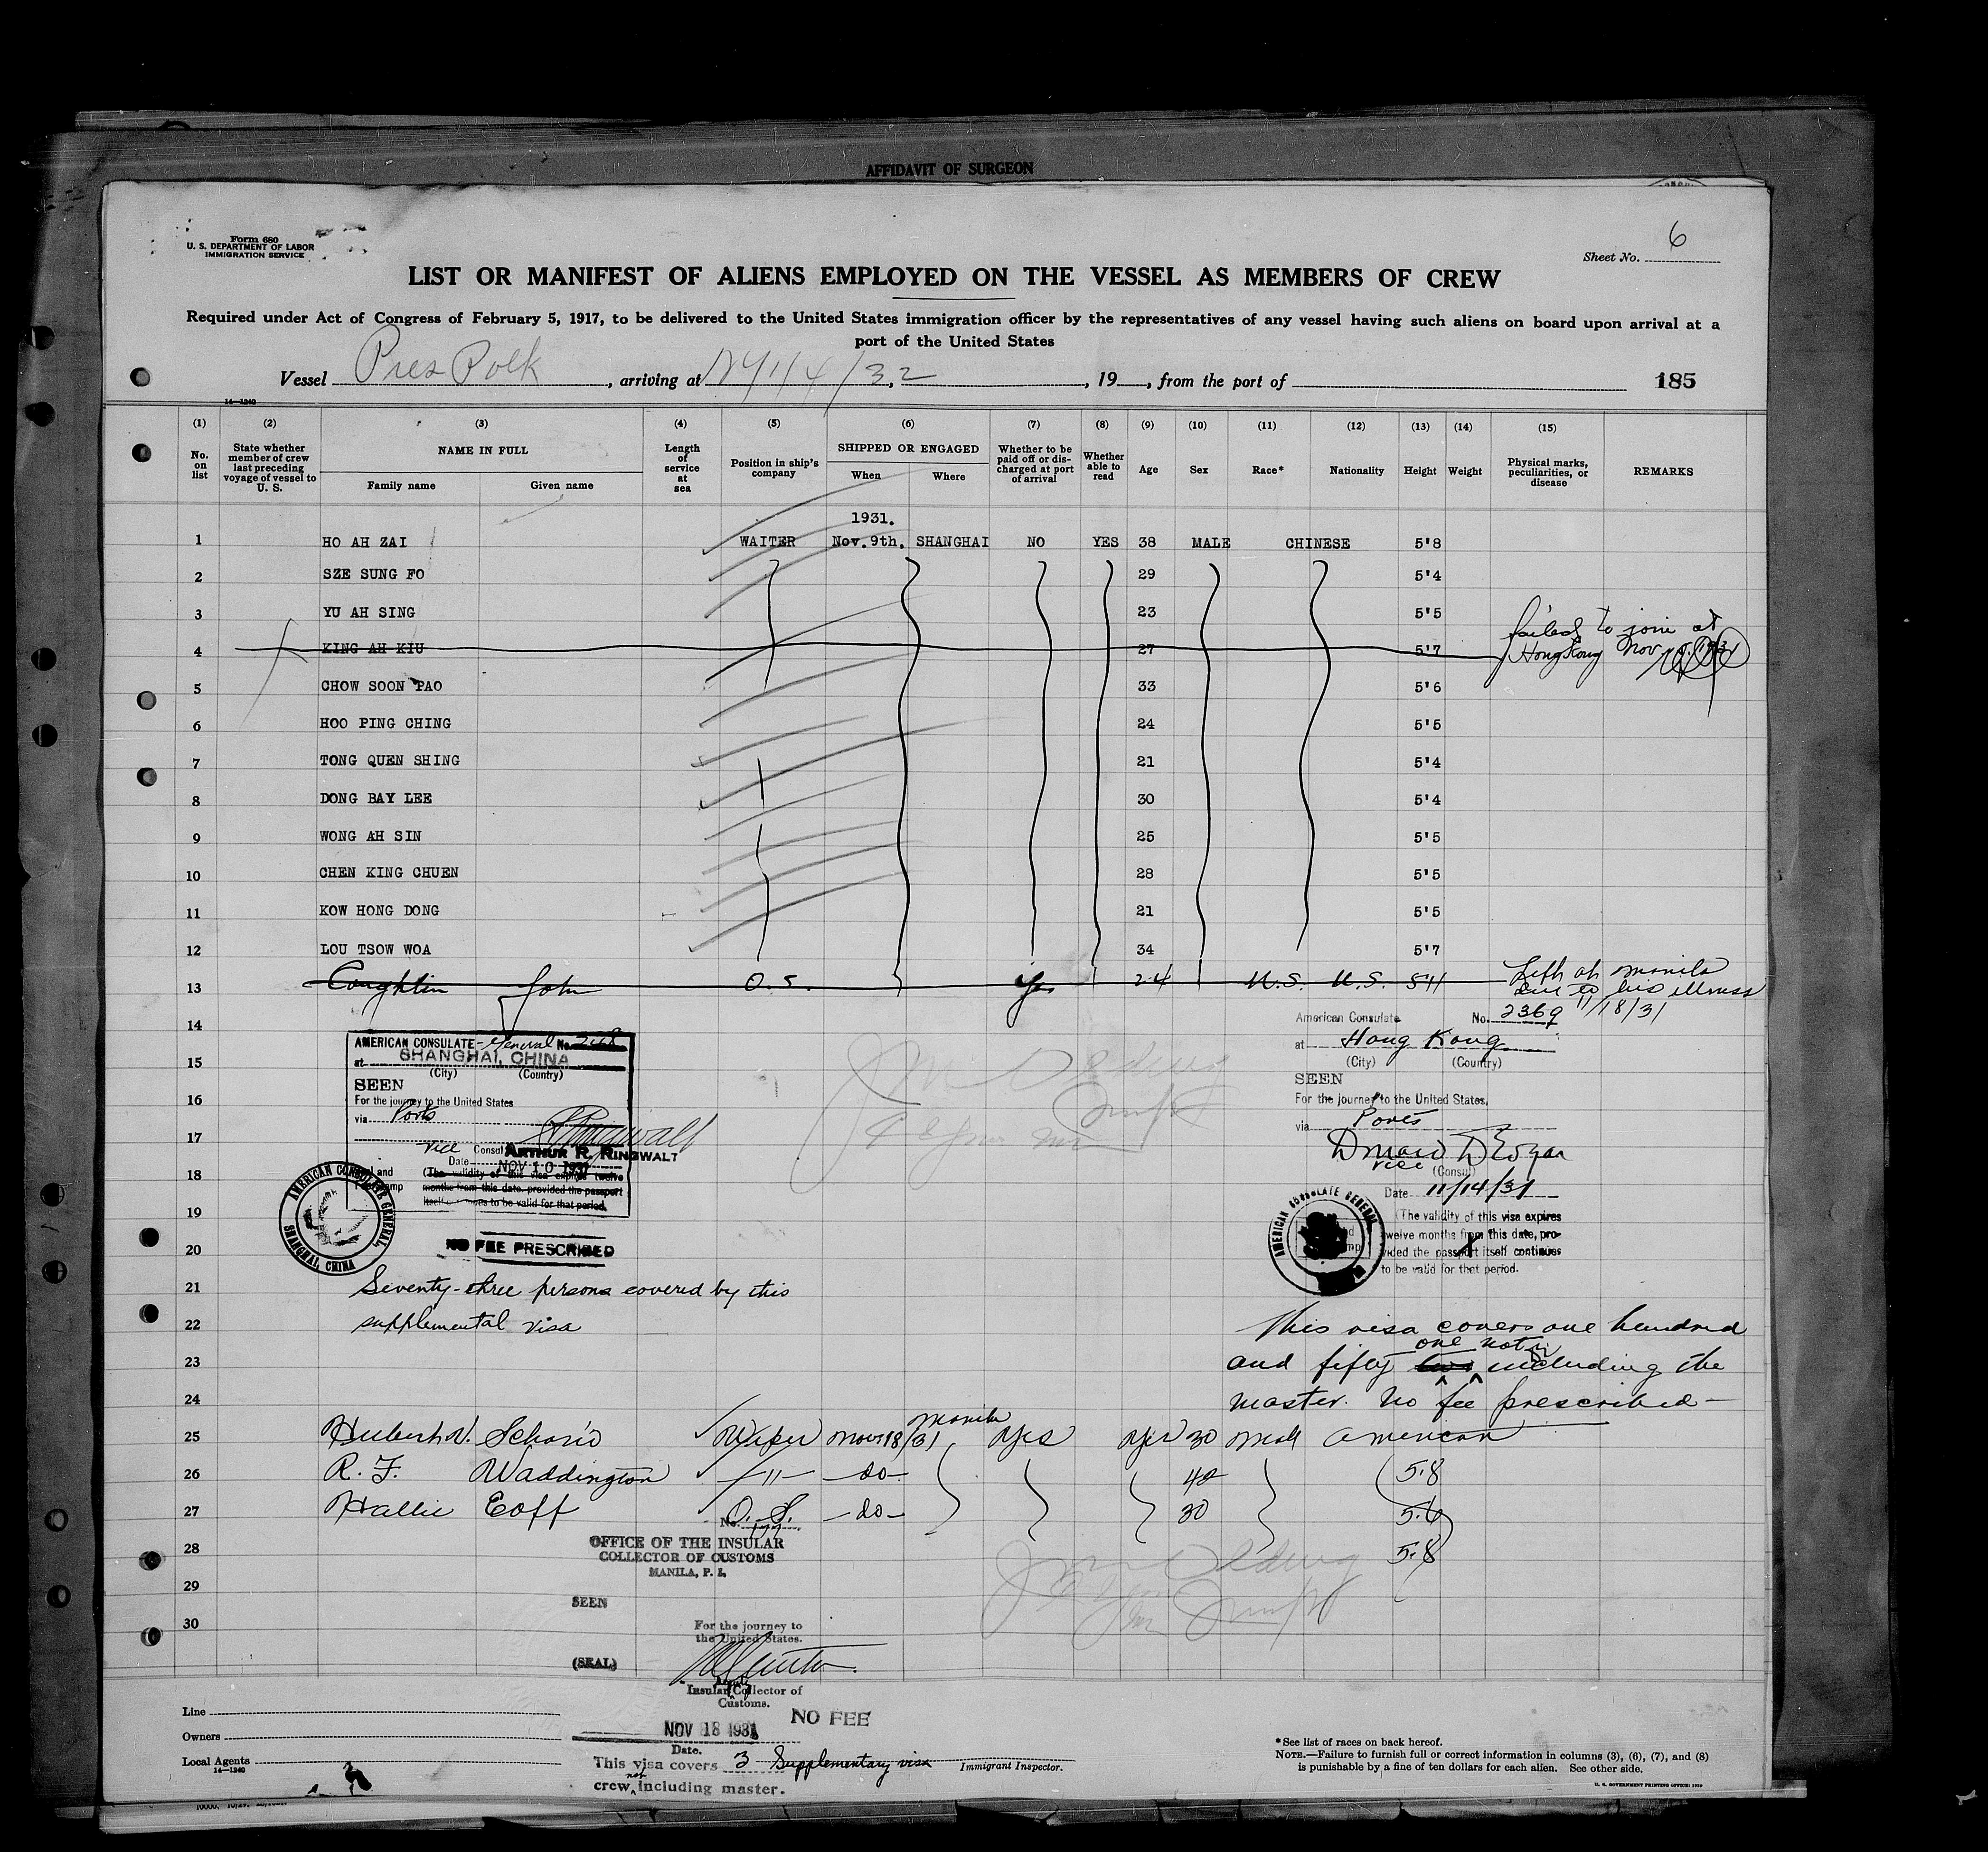 AFFIDAVIT OF SURGEON
Form 680
U. S. DEPARTMENT OF LABOR
IMMIGRATION SERVICE
Sheet No. 6
LIST OR MANIFEST OF ALIENS EMPLOYED ON THE VESSEL AS MEMBERS OF CREW
Required under Act of Congress of February 5, 1917, to be delivered to the United States immigration officer by the representatives of any vessel having such aliens on board upon arrival at a
port of the United States
Vessel Pres Polk, arriving at NY 1/4/32, 19 , from the port of 185
14—1240
(1) (2) (3) (4) (5) (6) (7) (8) (9) (10) (11) (12) (13) (14) (15)
No. on list
State whether member of crew last preceding voyage of vessel to U. S.
NAME IN FULL
Family name Given name
Length of service at sea
Position in ship's company
SHIPPED OR ENGAGED
When Where
Whether to be paid off or discharged at port of arrival
Whether able to read
Age Sex Race* Nationality Height Weight
Physical marks, peculiarities, or disease
REMARKS
1931.
1 HO AH ZAI WAITER Nov. 9th. SHANGHAI NO YES 38 MALE CHINESE 5'8
2 SZE SUNG FO 29 5'4
3 YU AH SING 23 5'5
4 KING AH KIU 27 5'7 failed to join at Hongkong Nov
5 CHOW SOON PAO 33 5'6
6 HOO PING CHING 24 5'5
7 TONG QUEN SHING 21 5'4
8 DONG BAY LEE 30 5'4
9 WONG AH SIN 25 5'5
10 CHEN KING CHUEN 28 5'5
11 KOW HONG DONG 21 5'5
12 LOU TSOW WOA 34 5'7
13 Coughlin John O.S. Yes 24 U.S. U.S. 5'11 Left at Manila due to his illness 11/18/31
14
15
16
17
18
19
20
21
22
23
24
AMERICAN CONSULATE-General No. 268
at SHANGHAI, CHINA
(City) (Country)
SEEN
For the journey to the United States
via Ports
Vice Consul ARTHUR R. RINGWALT
Date NOV 10 1931
(The validity of this visa expires twelve
months from this date, provided the passport
itself continues to be valid for that period.
AMERICAN CONSULATE GENERAL, SHANGHAI, CHINA
NO FEE PRESCRIBED
Seventy-three persons covered by this
supplemental visa
American Consulate No. 2369
at Hong Kong
(City) (Country)
SEEN
For the journey to the United States,
via Ports
Vice (Consul)
Date 11/14/31
(The validity of this visa expires
twelve months from this date, pro-
vided the passport itself continues
to be valid for that period.
AMERICAN CONSULATE GENERAL
This visa covers one hundred
and fifty two one not including the
master. No fee prescribed—
25 Hubert N. Wiper Nov 18/31 Manila yes yes 30 Male American
26 R. F. Waddington —"— —do— 42 5.8
27 Hallie Eoff O. S. —do— 30 5.6
28 5.8
29
30
No. 177
OFFICE OF THE INSULAR
COLLECTOR OF CUSTOMS
MANILA, P. I.
SEEN
For the journey to
the United States.
(SEAL)
Deputy
Insular Collector of
Customs.
NOV 18 1931
Date.
NO FEE
This visa covers 3 Supplementary visa
crew, not including master.
Line
Owners
Local Agents
14—1240
Immigrant Inspector.
*See list of races on back hereof.
NOTE.—Failure to furnish full or correct information in columns (3), (6), (7), and (8)
is punishable by a fine of ten dollars for each alien. See other side.